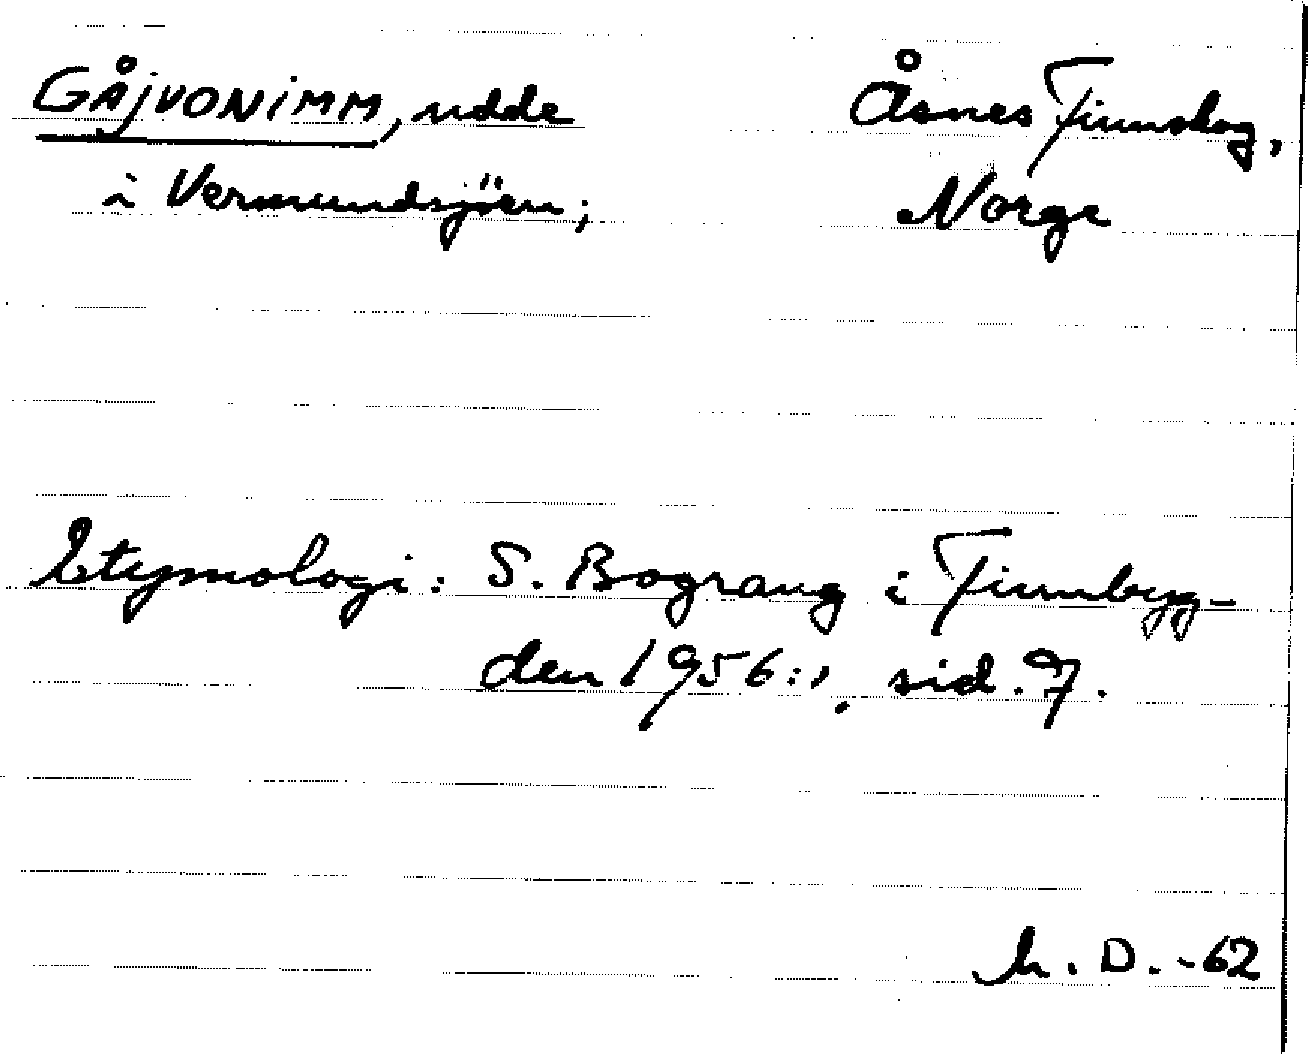 GÅJVONIMM, udde
i Vermundsjöen;
Åsnes Finnskog,
Norge
Etymologi: S. Bograng i Finnbyg-
den 1956:1, sid. 7.
h. D. -62